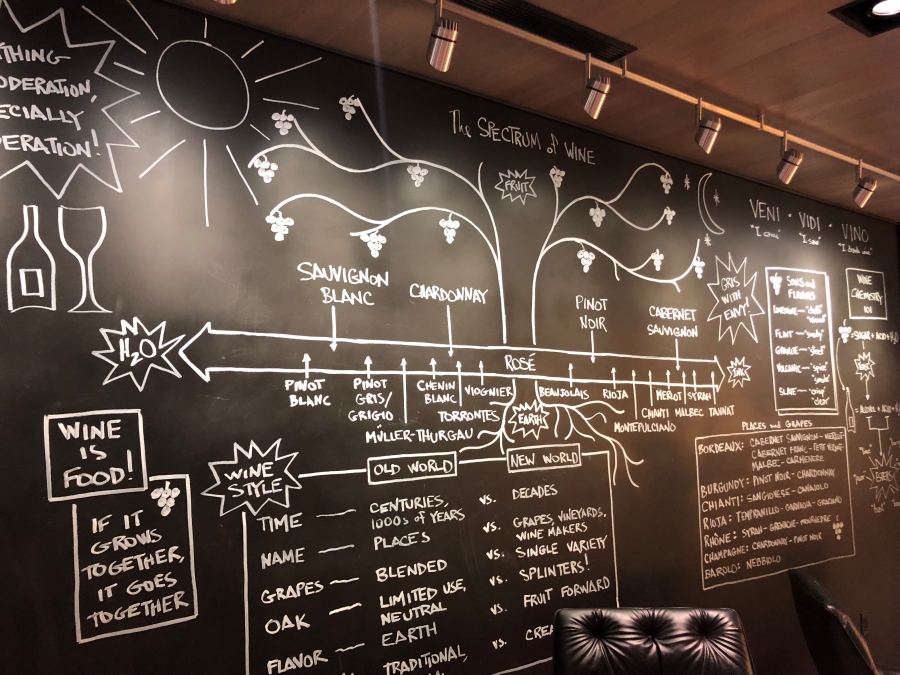 THING
ODERATION,
ECIALLY
ERATION!
The SPECTRUM of WINE
FRUIT
VENI · VIDI · VINO
"I came" "I saw" "I drank wine"
SAUVIGNON
BLANC
CHARDONNAY
PINOT
NOIR
CABERNET
SAUVIGNON
GRIS
WITH
ENVY!
H2O
ROSÉ
INK
PINOT
BLANC
PINOT
GRIS/
GRIGIO
MÜLLER-THURGAU
CHENIN
BLANC
TORRONTES
VIOGNIER
EARTH
BEAUJOLAIS
RIOJA
MONTEPULCIANO
CHIANTI
MERLOT
MALBEC
SYRAH
TANNAT
SOILS and
FLAVORS
FLINT — "smoky"
GRANITE — "steel"
VOLCANIC — "spice"
"smoke"
SLATE — "crisp"
"clean"
WINE
CHEMISTRY
101
WINE
IS
FOOD!
IF IT
GROWS
TOGETHER,
IT GOES
TOGETHER
WINE
STYLE
OLD WORLD
NEW WORLD
TIME — CENTURIES, vs. DECADES
1000s of YEARS
NAME — PLACES vs. GRAPES, VINEYARDS,
WINE MAKERS
GRAPES — BLENDED vs. SINGLE VARIETY
OAK — LIMITED USE, vs. SPLINTERS!
NEUTRAL
FLAVOR — EARTH vs. FRUIT FORWARD
TRADITIONAL, vs. CREA
PLACES and GRAPES
BORDEAUX: CABERNET SAUVIGNON - MERLOT
CABERNET FRANC - PETIT VERDOT
MALBEC - CARMENERE
BURGUNDY: PINOT NOIR - CHARDONNAY
CHIANTI: SANGIOVESE - CANAIOLO
RIOJA: TEMPRANILLO - GARNACHA - GRACIANO
RHÔNE: SYRAH - GRENACHE - MOURVEDRE
CHAMPAGNE: CHARDONNAY - PINOT NOIR
BAROLO: NEBBIOLO